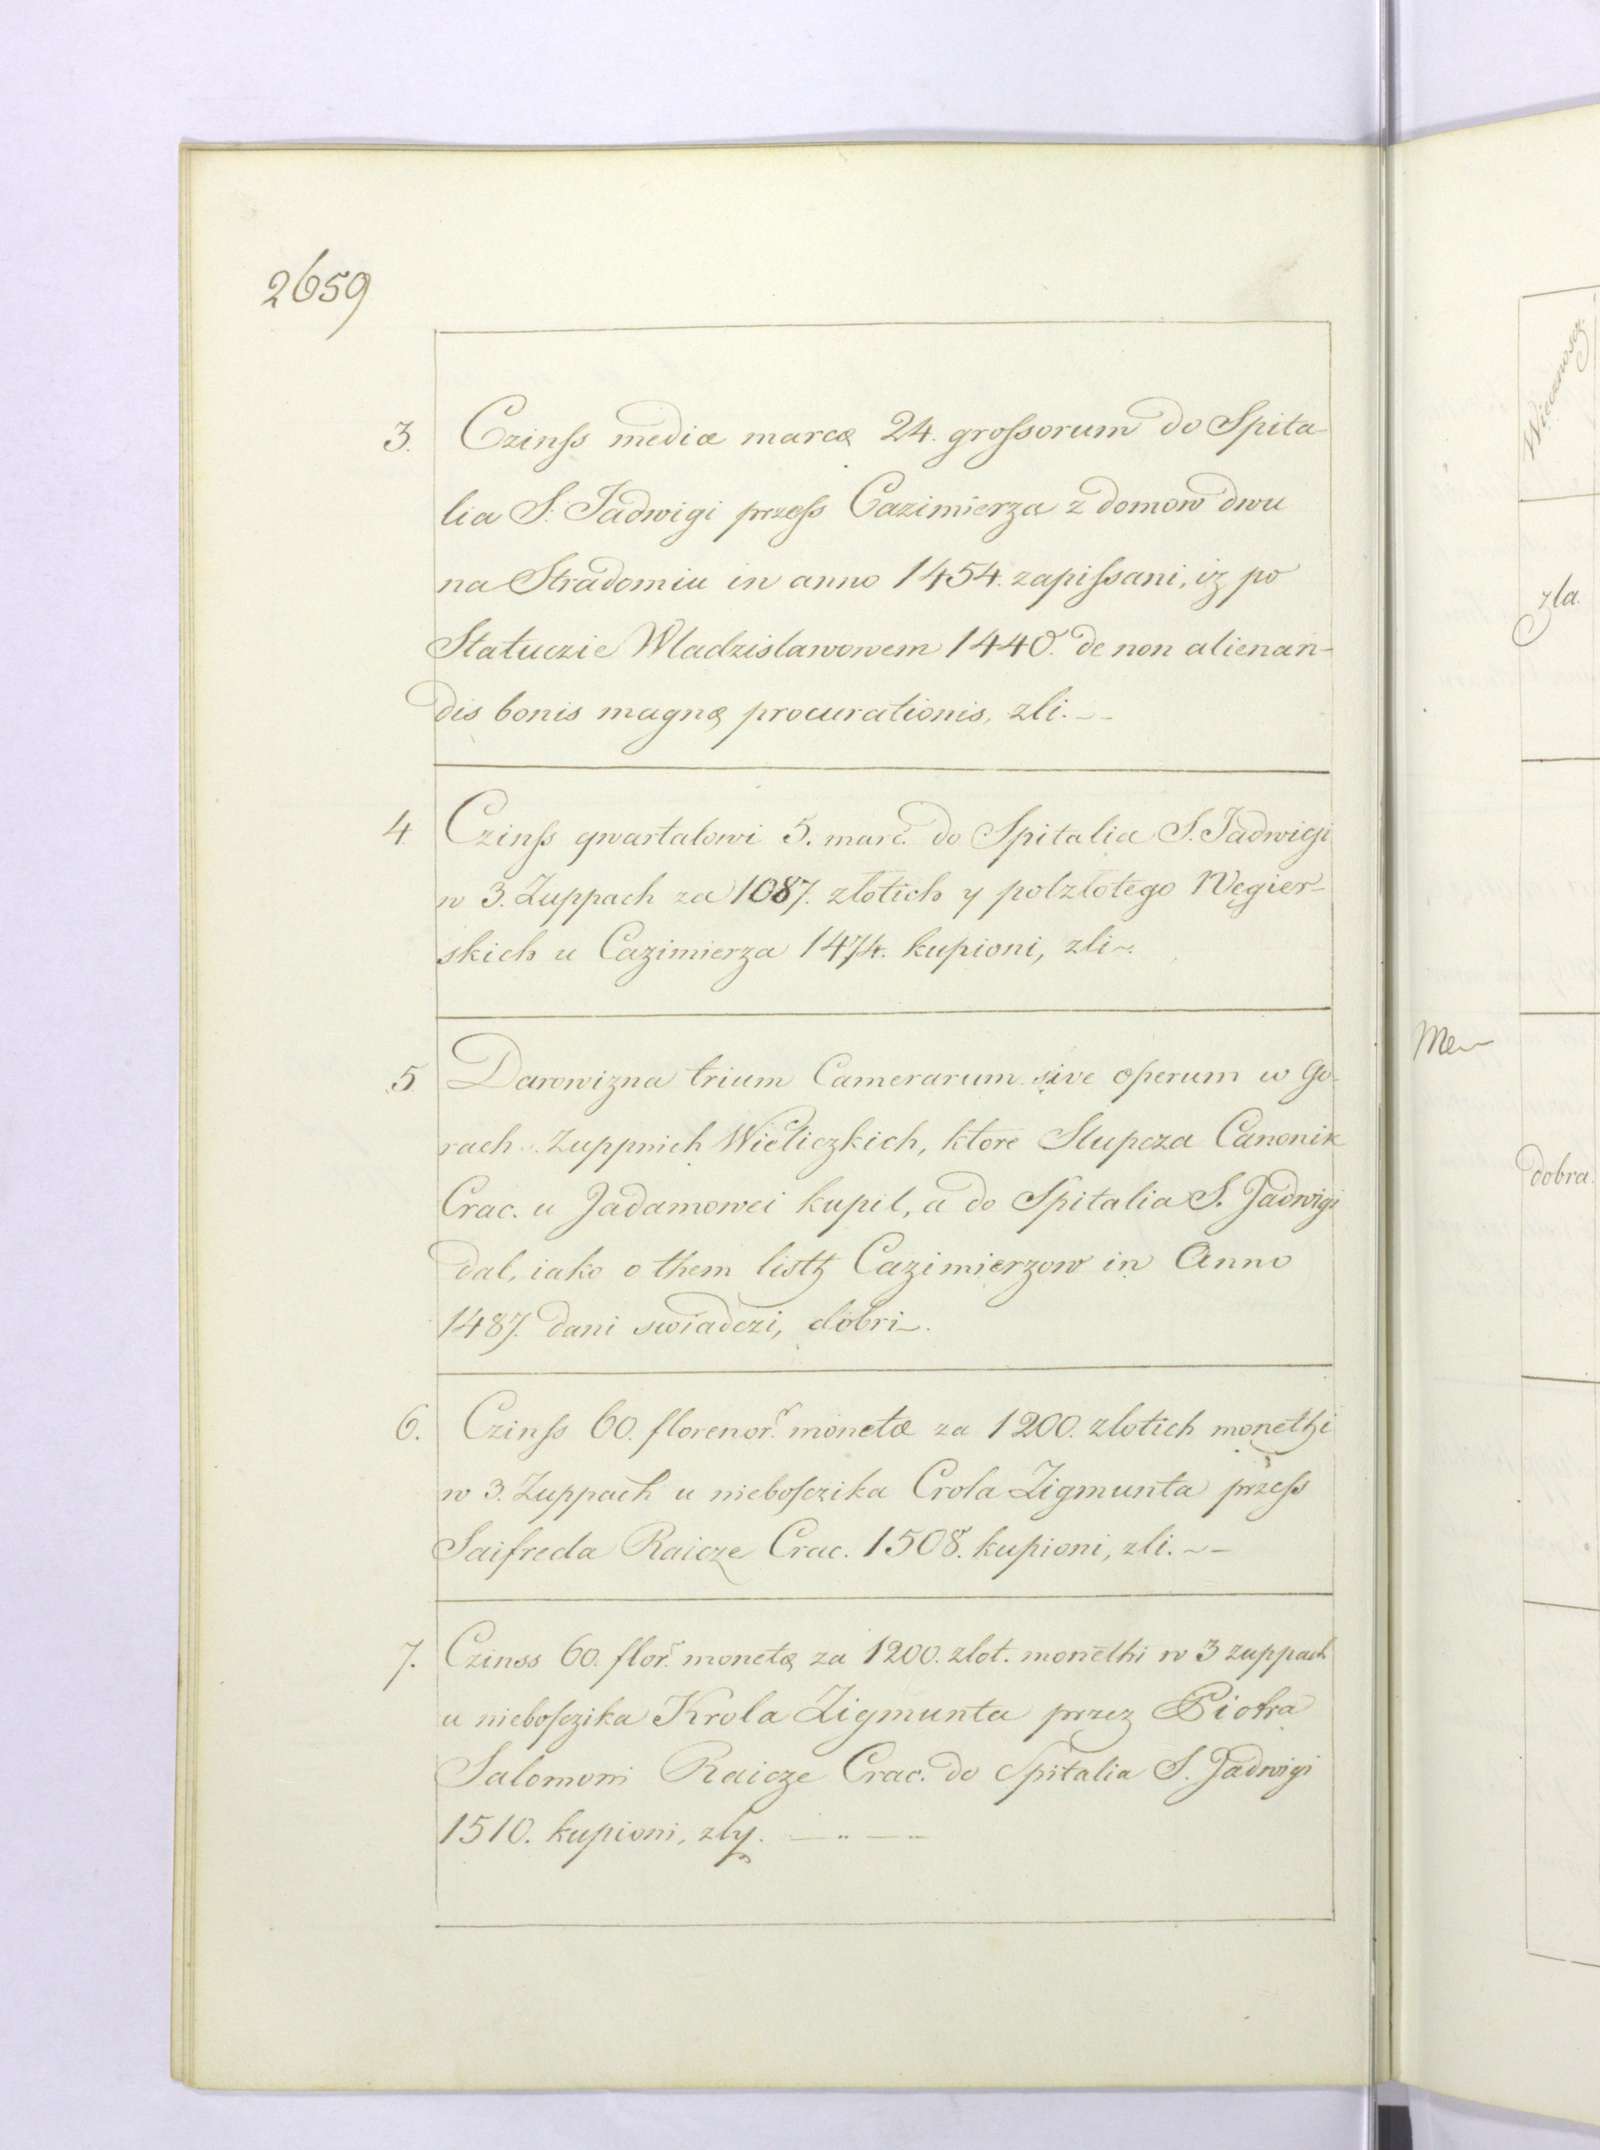 2659
3. Czinſs mediæ marcæ 24. groſsorum do Spita-
lia S. Jadwigi przeſs Cazimierza z domow dwu
na Stradomiu in anno 1454. zapiſsani, iz po
Statuczie Wladzislawowem 1440. de non alienan-
dis bonis magnæ procurationis, zli. ~ -
4 Czinſs qwartalowi 5. marc. do Spitalia S. Jadwigi
w 3. Zuppach za 1087. zlotich y polzlotego Wegier-
skich u Cazimierza 1474. kupioni, zli ~.
5 Darowizna trium Camerarum sive operum w Go-
rach Zuppnich Wieliczkich, ktore Slupcza Canonik
Crac. u Jadamowei kupil, a do Spitalia S. Jadwigi
dal, iako o them listh Cazimierzow in Anno
1487. dani swiadczi, dobri ~.
6. Czinſs 60. florenor. monetæ za 1200. zlotich monethi
w 3. Zuppach u nieboſczika Crola Zigmunta przeſs
Saifreda Raicze Crac. 1508. kupioni, zli. ~ -
7. Czinss 60. flor. monetæ za 1200. zlot. monethi w 3 zuppach
u nieboſczika Krola Zigmunta przez Piotra
Salomoni Raicze Crac. do Spitalia S. Jadwigi
1510. kupioni, zly. — .. — ..
Wieczność
zla.
Me
dobra.